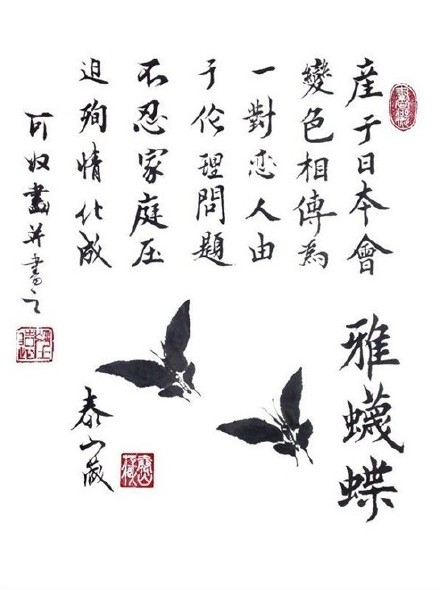 産于日本會
變色相傳為
一對恋人由
于伦理問題
不忍家庭压
迫殉情化成
雅蠛蝶
可奴畫并書之
泰山藏